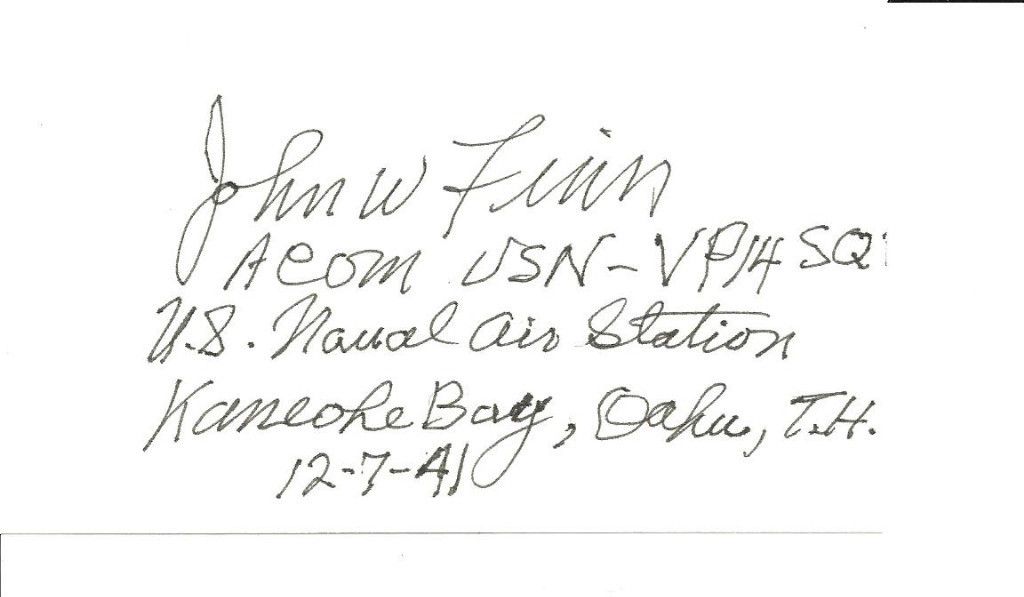 John W Finn
ACOM USN-VP14 SQ
U.S. Naval Air Station
Kaneohe Bay, Oahu, T.H.
12-7-41